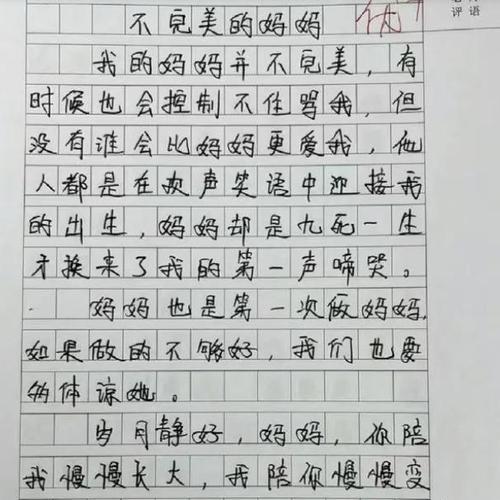 评语
不完美的妈妈 优
我的妈妈并不完美，有
时候也会控制不住骂我，但
没有谁会比妈妈更爱我，他
人都是在欢声笑语中迎接我
的出生，妈妈却是九死一生
才换来了我的第一声啼哭。
妈妈也是第一次做妈妈，
如果做的不够好，我们也要
多体谅她。
岁月静好，妈妈，你陪
我慢慢长大，我陪你慢慢变